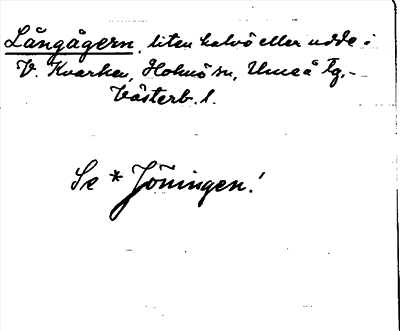 Långågern, liten halvö eller udde i
V. Kvarken, Holmö sn, Umeå tg,-
Västerb. l.
Se *Jöningen!